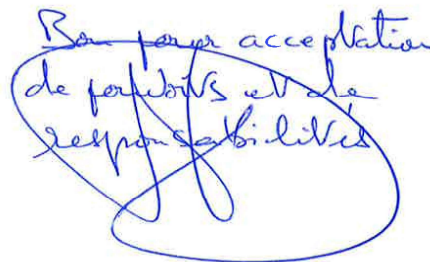 Bon pour acceptation
de pouvoirs et de
responsabilités